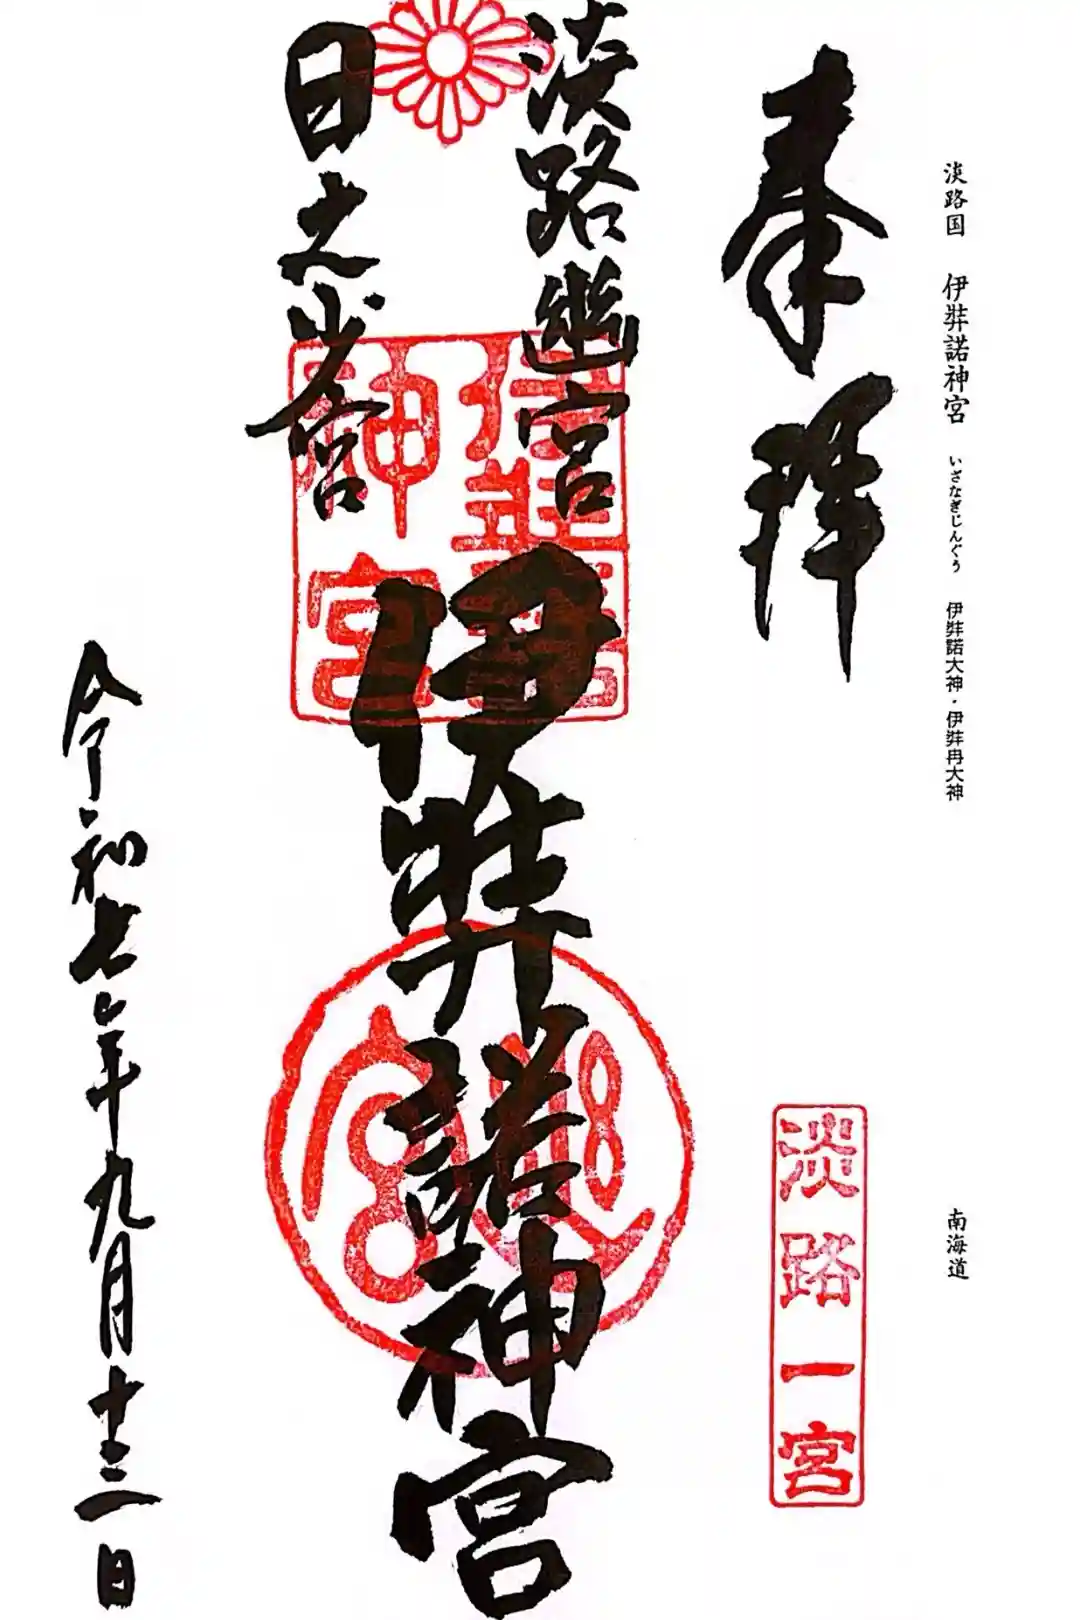 淡路国 伊弉諾神宮 いざなぎじんぐう 伊弉諾大神・伊弉冉大神
南海道
奉拝
淡路一宮
淡路幽宮
日之少宮
伊弉諾神宮
伊弉諾神宮
令和七年九月十三日